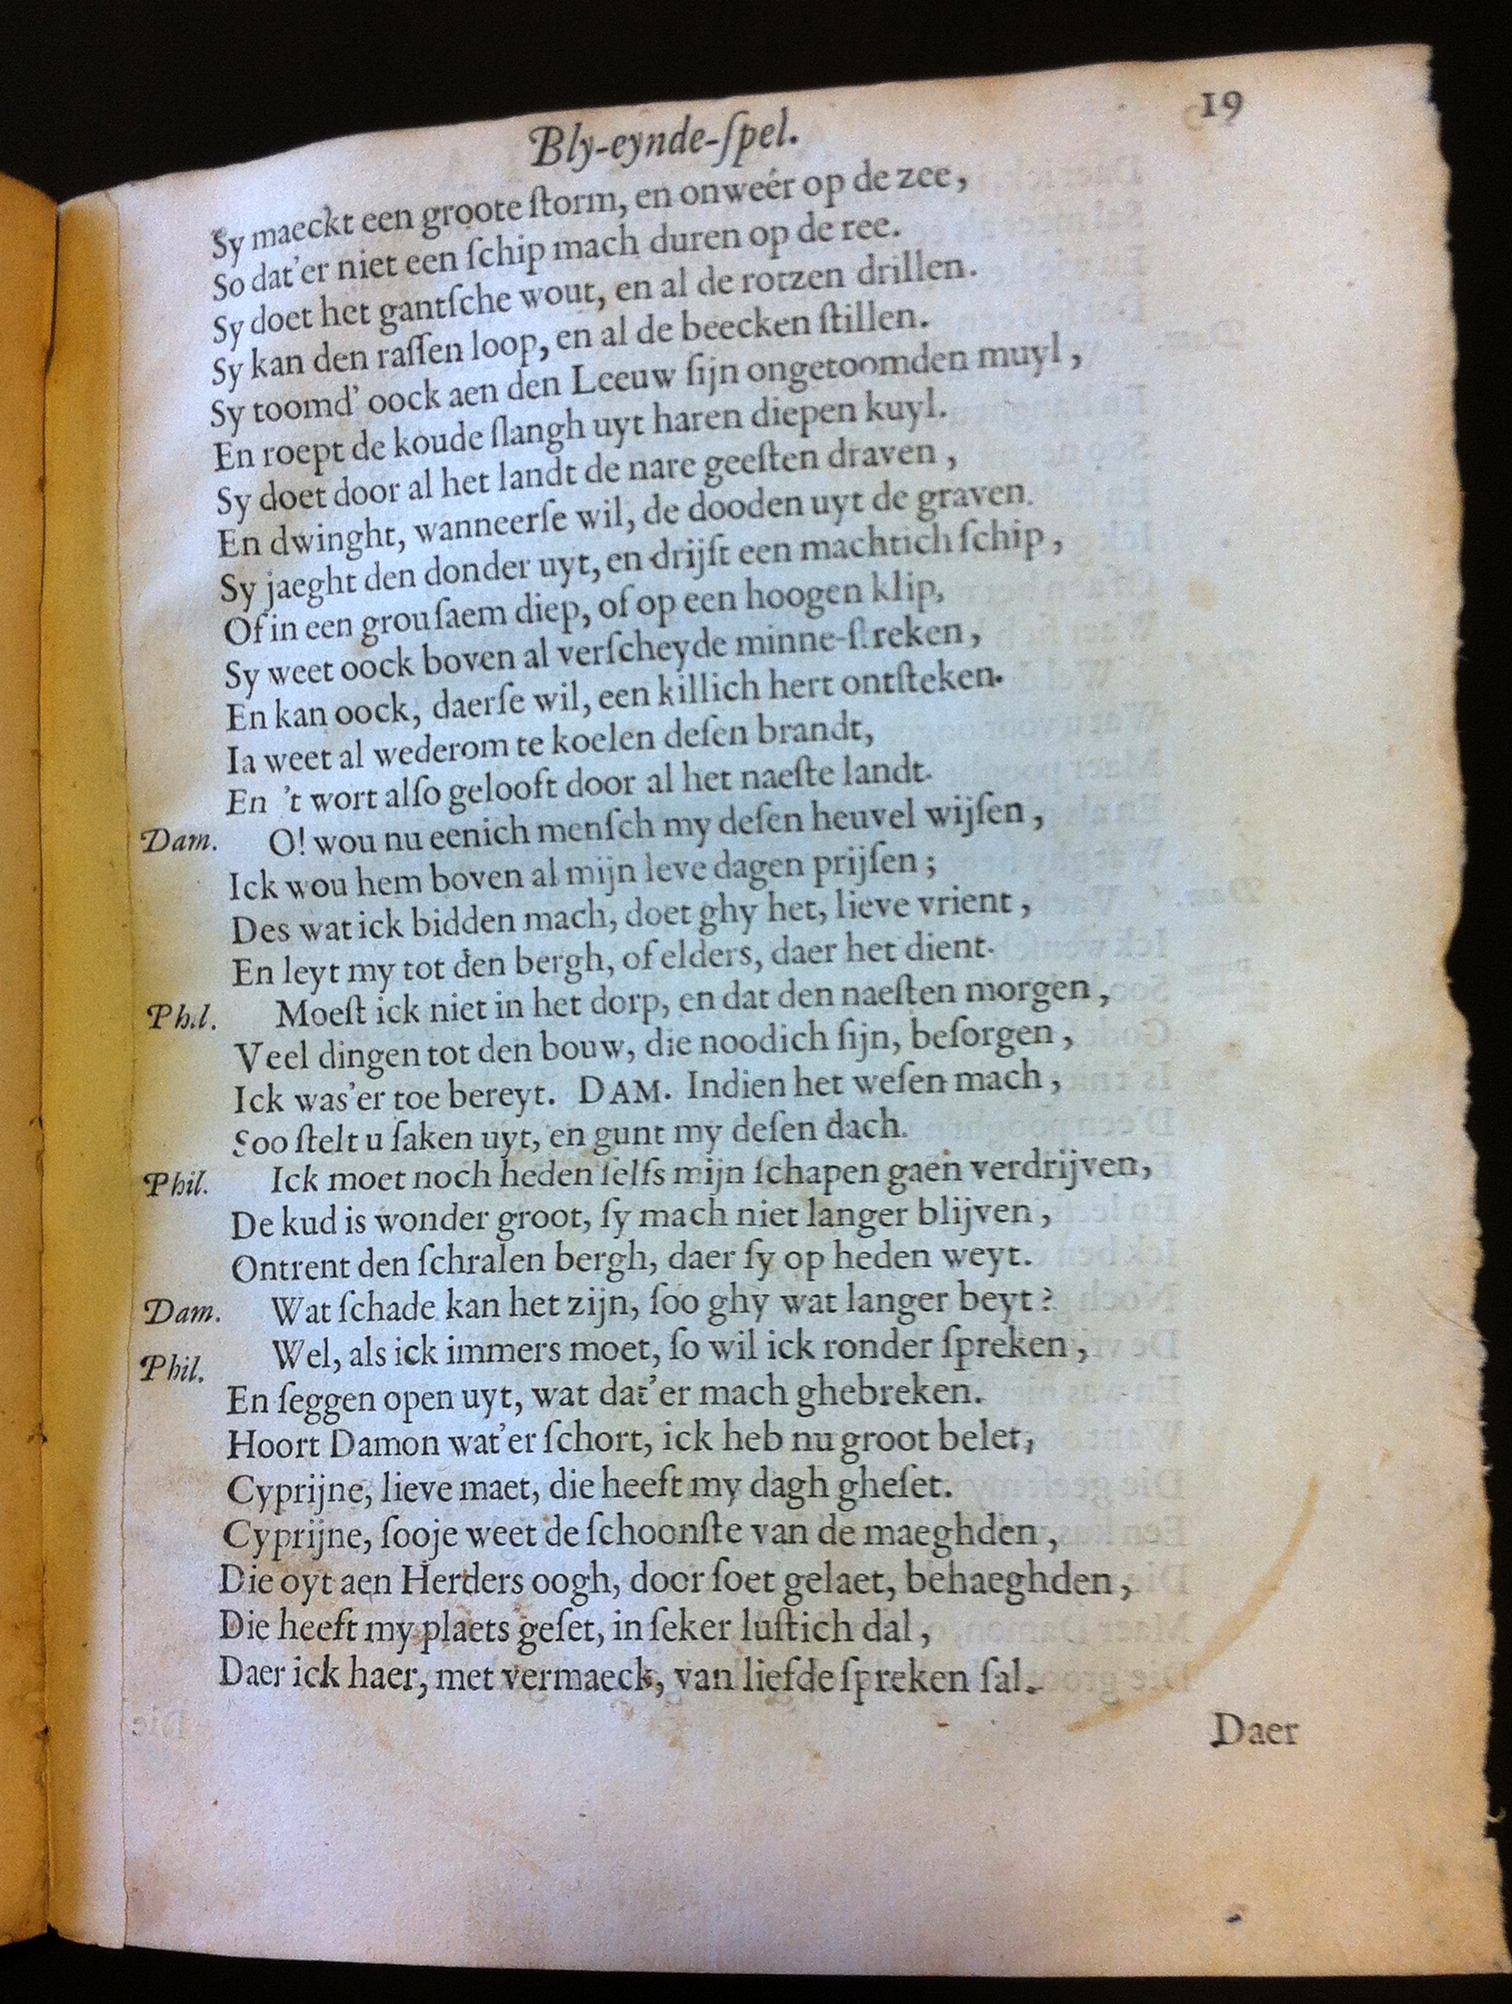 19
Bly-eynde-ſpel.
Sy maeckt een groote ſtorm, en onweér op de zee,
So dat'er niet een ſchip mach duren op de ree.
Sy doet het gantſche wout, en al de rotzen drillen.
Sy kan den raſſen loop, en al de beecken ſtillen.
Sy toomd' oock aen den Leeuw ſijn ongetoomden muyl,
En roept de koude ſlangh uyt haren diepen kuyl.
Sy doet door al het landt de nare geeſten draven,
En dwinght, wanneerſe wil, de dooden uyt de graven.
Sy jaeght den donder uyt, en drijft een machtich ſchip,
Of in een grouſaem diep, of op een hoogen klip,
Sy weet oock boven al verſcheyde minne-ſtreken,
En kan oock, daerſe wil, een killich hert ontſteken.
Ia weet al wederom te koelen deſen brandt,
En 't wort alſo gelooft door al het naeſte landt.
Dam. O! wou nu eenich menſch my deſen heuvel wijſen,
Ick wou hem boven al mijn leve dagen prijſen;
Des wat ick bidden mach, doet ghy het, lieve vrient,
En leyt my tot den bergh, of elders, daer het dient.
Phil. Moeſt ick niet in het dorp, en dat den naeſten morgen,
Veel dingen tot den bouw, die noodich ſijn, beſorgen,
Ick was'er toe bereyt. DAM. Indien het weſen mach,
Soo ſtelt u ſaken uyt, en gunt my deſen dach.
Phil. Ick moet noch heden ſelfs mijn ſchapen gaen verdrijven,
De kud is wonder groot, ſy mach niet langer blijven,
Ontrent den ſchralen bergh, daer ſy op heden weyt.
Dam. Wat ſchade kan het zijn, ſoo ghy wat langer beyt?
Phil. Wel, als ick immers moet, ſo wil ick ronder ſpreken,
En ſeggen open uyt, wat dat'er mach ghebreken.
Hoort Damon wat'er ſchort, ick heb nu groot belet,
Cyprijne, lieve maet, die heeft my dagh gheſet.
Cyprijne, ſooje weet de ſchoonſte van de maeghden,
Die oyt aen Herders oogh, door ſoet gelaet, behaeghden,
Die heeft my plaets geſet, in ſeker luſtich dal,
Daer ick haer, met vermaeck, van liefde ſpreken ſal.
Daer